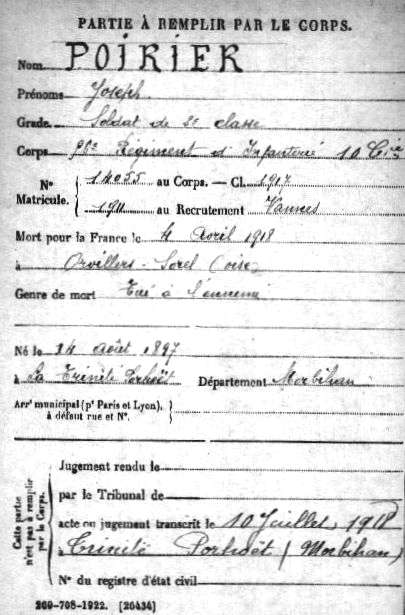 PARTIE À REMPLIR PAR LE CORPS.
Nom POIRIER
Prénoms Joseph
Grade Soldat de 2e classe
Corps 26e Régiment d'Infanterie 10 Cie
No Matricule. { 14055 au Corps. — Cl. 1917
1911 au Recrutement Vannes
Mort pour la France le 4 Avril 1918
à Orvillers-Sorel (Oise)
Genre de mort Tué à l'ennemi
Né le 14 Août 1897
à La Trinité Porhoët Département Morbihan
Arrt municipal (pr Paris et Lyon), à défaut rue et No. }
Cette partie n'est pas à remplir par le Corps. {
Jugement rendu le
par le Tribunal de
acte ou jugement transcrit le 10 Juillet 1918
à Trinité Porhoët (Morbihan)
No du registre d'état civil
269-708-1922. [26434]